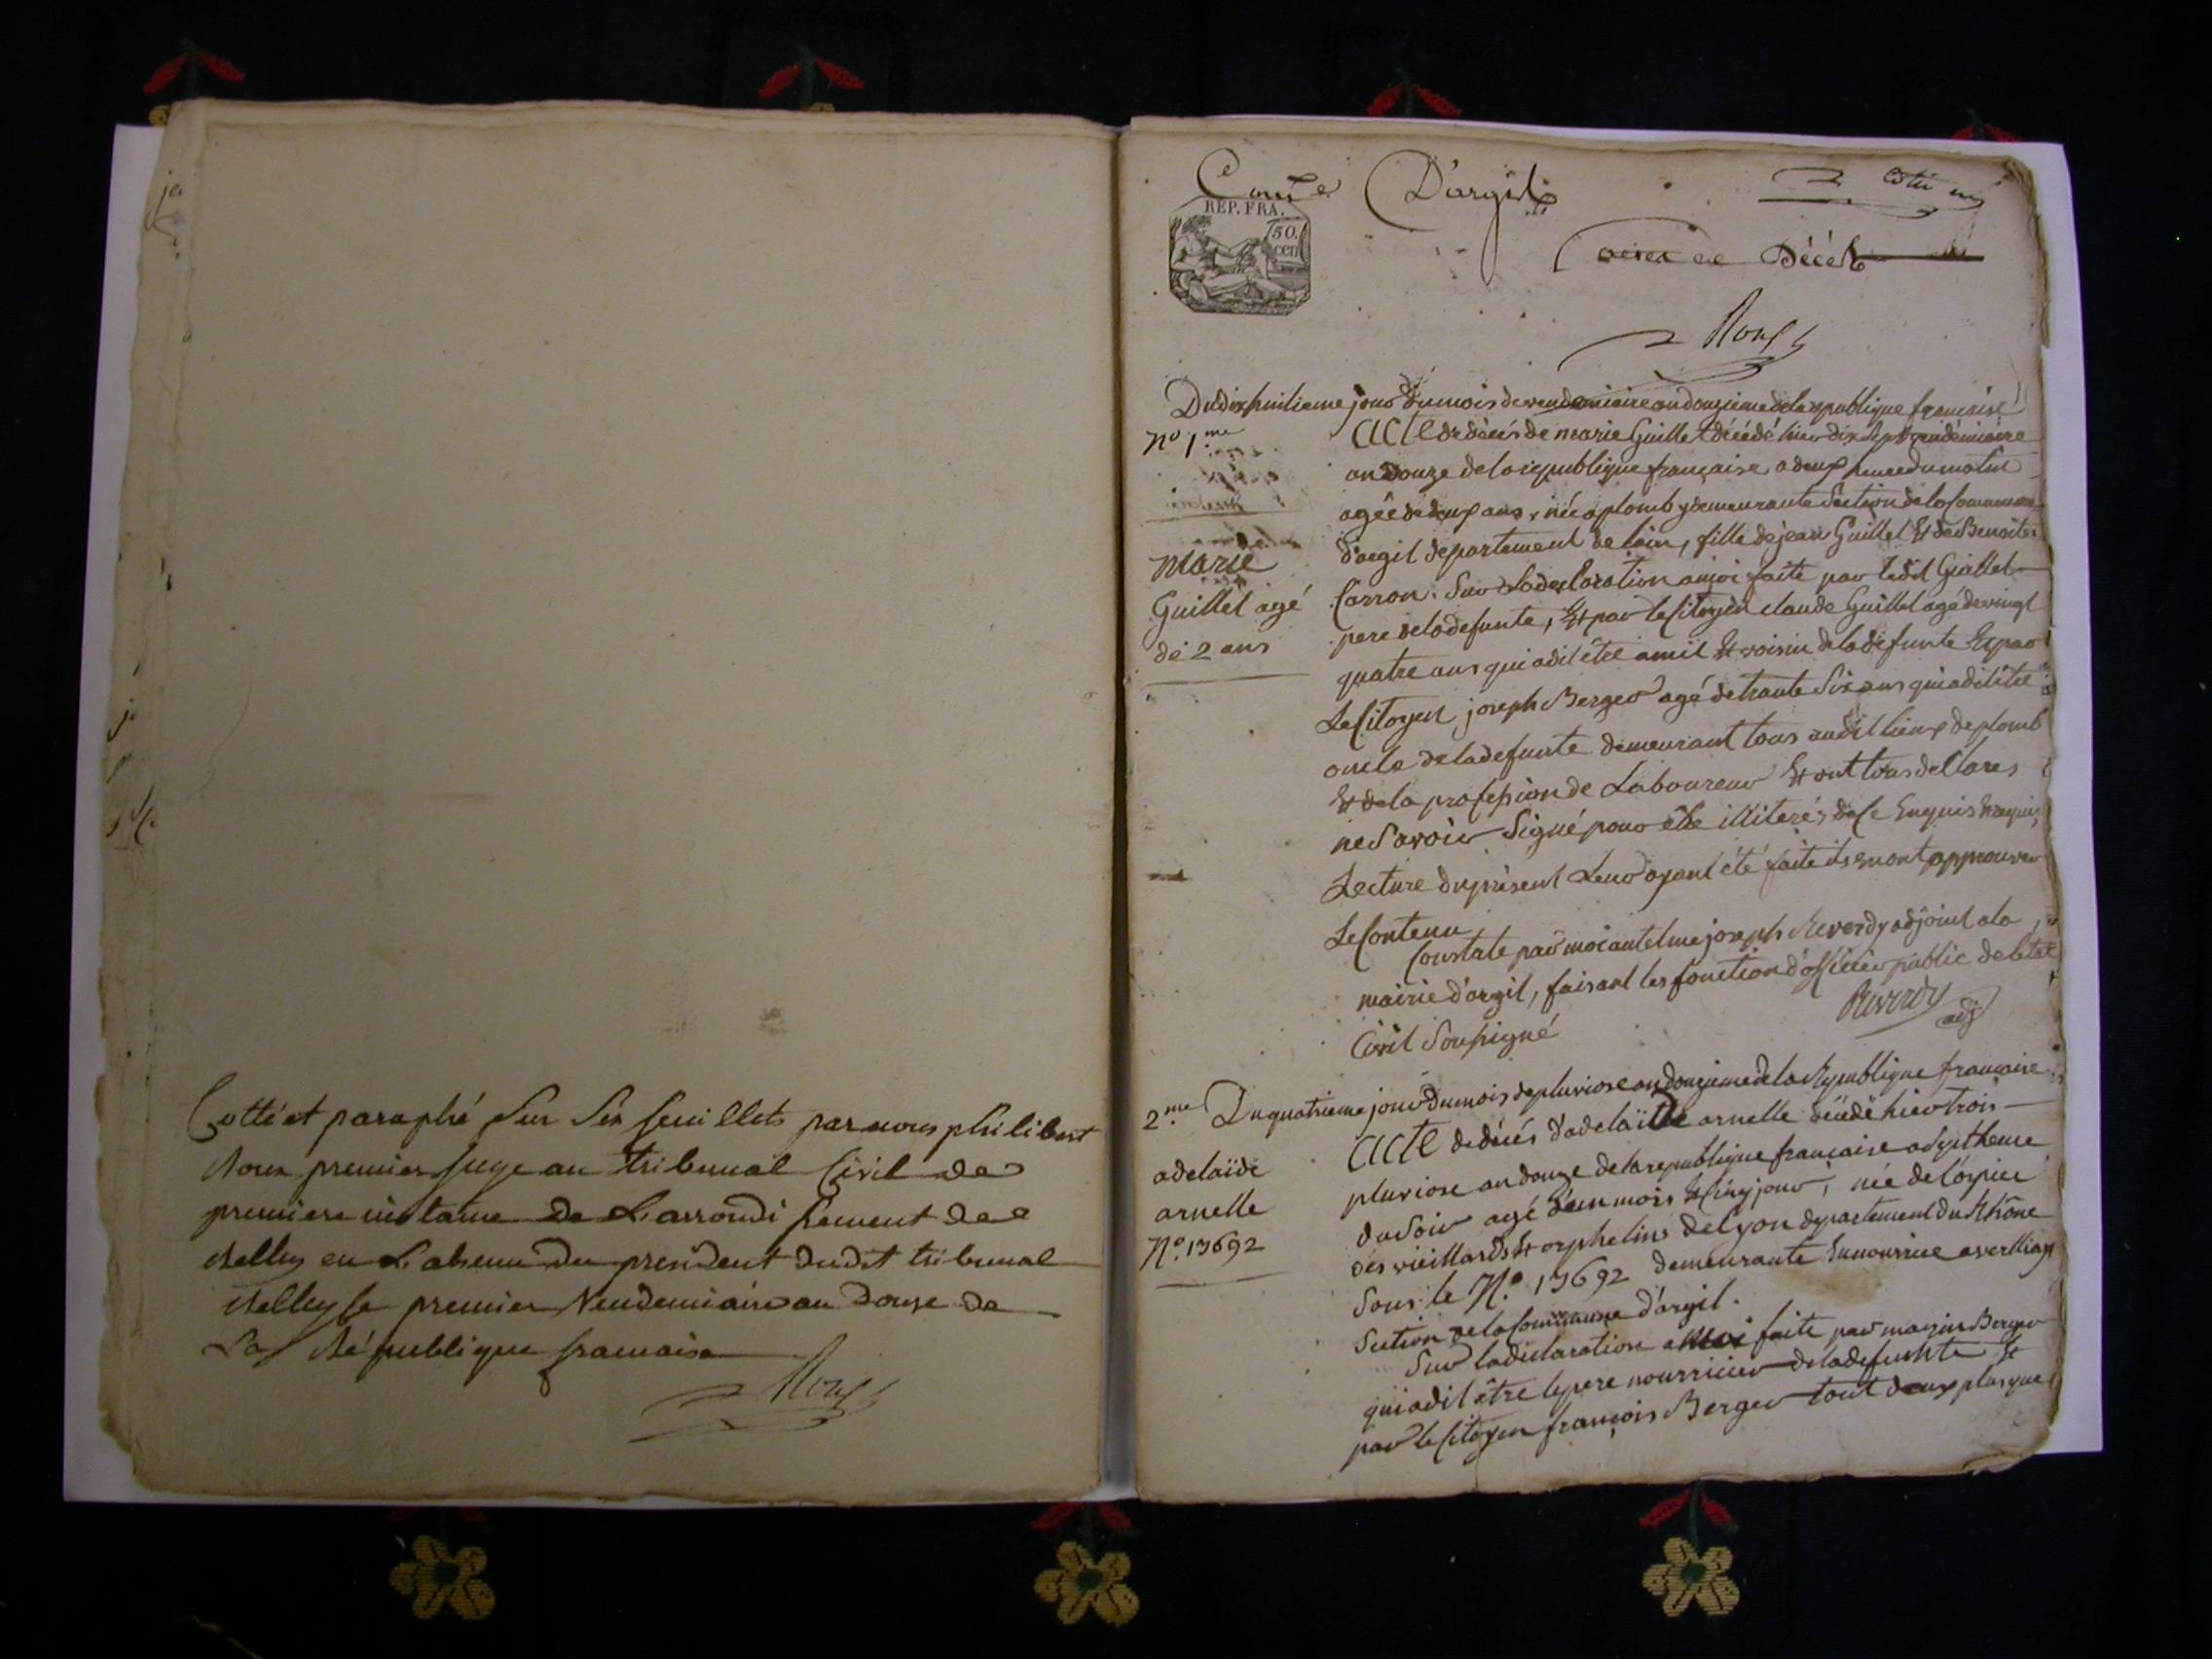 Cotté et paraphé Sur Six feuillets par nous philibert
Roux premier juge au tribunal Civil de
premiere instance de L'arrondissement de
Belley en L'absence du president dudit tribunal
Belley le premier Vendemiaire an Douze de
La République francaise
Roux
Com.ne D'argil
REP. FRA.
50.
cen
actes de Décès
Roux
Du dix huitieme jour du mois de vendemiaire an douzieme de la republique française
No 1.me
Acte de décès de marie Guillet décédé hier dix Sept vendémiaire
an douze de la republique française a deux heure du matin
agée de deux ans, née a plomb y demeurante Section de la Commune
d'argil departement de lain, fille de jean Guillet Et de Benoite
marie
Guillet agé
de 2 ans
Carron. Sur La declaration a moi faite par ledit Guillet
pere de la defunte, Et par le Citoyen claude Guillet agé de vingt
quatre ans qui a dit être amit Et voisin de la defunte Et par
Le Citoyen joseph Berger agé de trante Six ans qui a dit être
oncle de la defunte demeurant tous au dit lieux de plomb
Et de la profession de Laboureur Et ont tous dellares
ne Savoir Signé pour être illiteré, de ce Enquis Et requis,
Lecture du présent Leur ayant été faite ils en ont approuver
Le Contenu
Constaté par moi antelme joseph Reverdy adjoint a la
mairie d'argil, faisant les fonction d'officier public de letat
Civil Soussigné
Reverdy
adj
2.me Du quatrieme jour du mois de pluviose an douzieme de la Republique francaise
Acte de décès d'adelaïde arnelle décédé hier trois
adelaïde
arnelle
No. 13692
pluviose an douze de la republique francaise a Sept heure
du Soir agé d'un mois Et Cinq jour, née de lospice
des vieillards Et orphelins de Lyon departement du Rhône
Sous le No. 13692 demeurante En nourrice a
Section de la Commune d'argil.
Sur la declaration a moi faite par Berger
qui a dit être le pere nourricier de la defunte Et
par le Citoyen françois Berger tout deux plus que